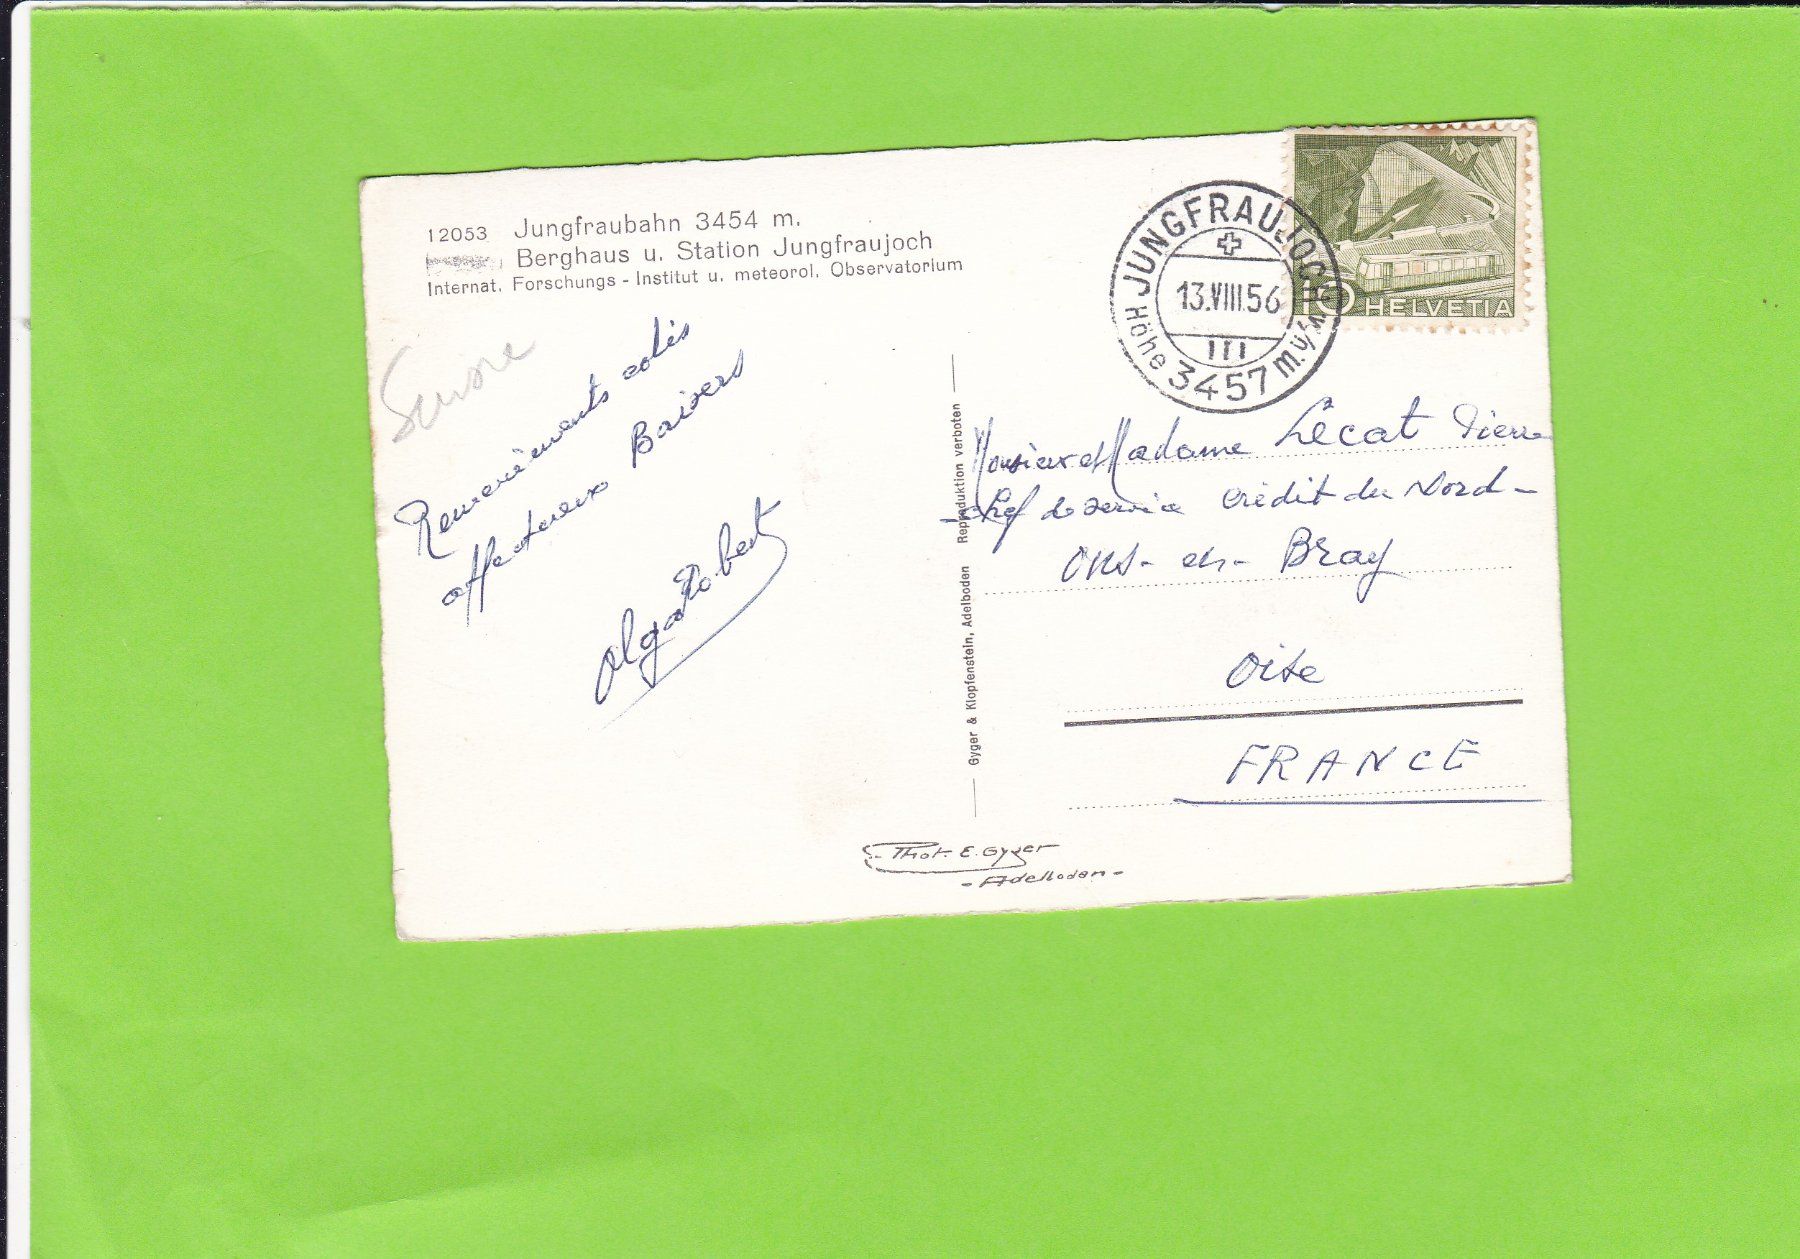 12053 Jungfraubahn 3454 m.
Berghaus u. Station Jungfraujoch
Internat. Forschungs - Institut u. meteorol. Observatorium
Suisse
Remerciements colis
affectueux Baisers
Olga Robert
Gyger & Klopfenstein, Adelboden Reproduktion verboten
JUNGFRAUJOCH
13.VIII.56
III
Höhe 3457 m.ü/M.
10 HELVETIA
Monsieur et Madame Lecat Pierre
- chef de service crédit du Nord -
Ons - en - Bray
Oise
FRANCE
- Phot. E. Gyger
- Adelboden -